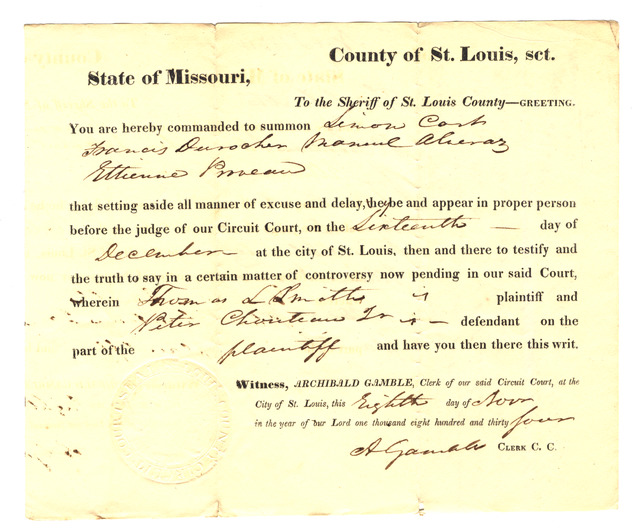 County of St. Louis, sct.
State of Missouri,
To the Sheriff of St. Louis County—GREETING.
You are hereby commanded to summon Simon Cart
Francis Durocher Manuel Alveraz
Ettienne Proveau
that setting aside all manner of excuse and delay, they be and appear in proper person
before the judge of our Circuit Court, on the Sixteenth — day of
December at the city of St. Louis, then and there to testify and
the truth to say in a certain matter of controversy now pending in our said Court,
wherein Thomas L Smith is plaintiff and
Peter Chouteau Jr is — defendant on the
part of the plaintiff and have you then there this writ.
Witness, ARCHIBALD GAMBLE, Clerk of our said Circuit Court, at the
City of St. Louis, this Eighth day of Novr
in the year of our Lord one thousand eight hundred and thirty four
A Gamble CLERK C. C.